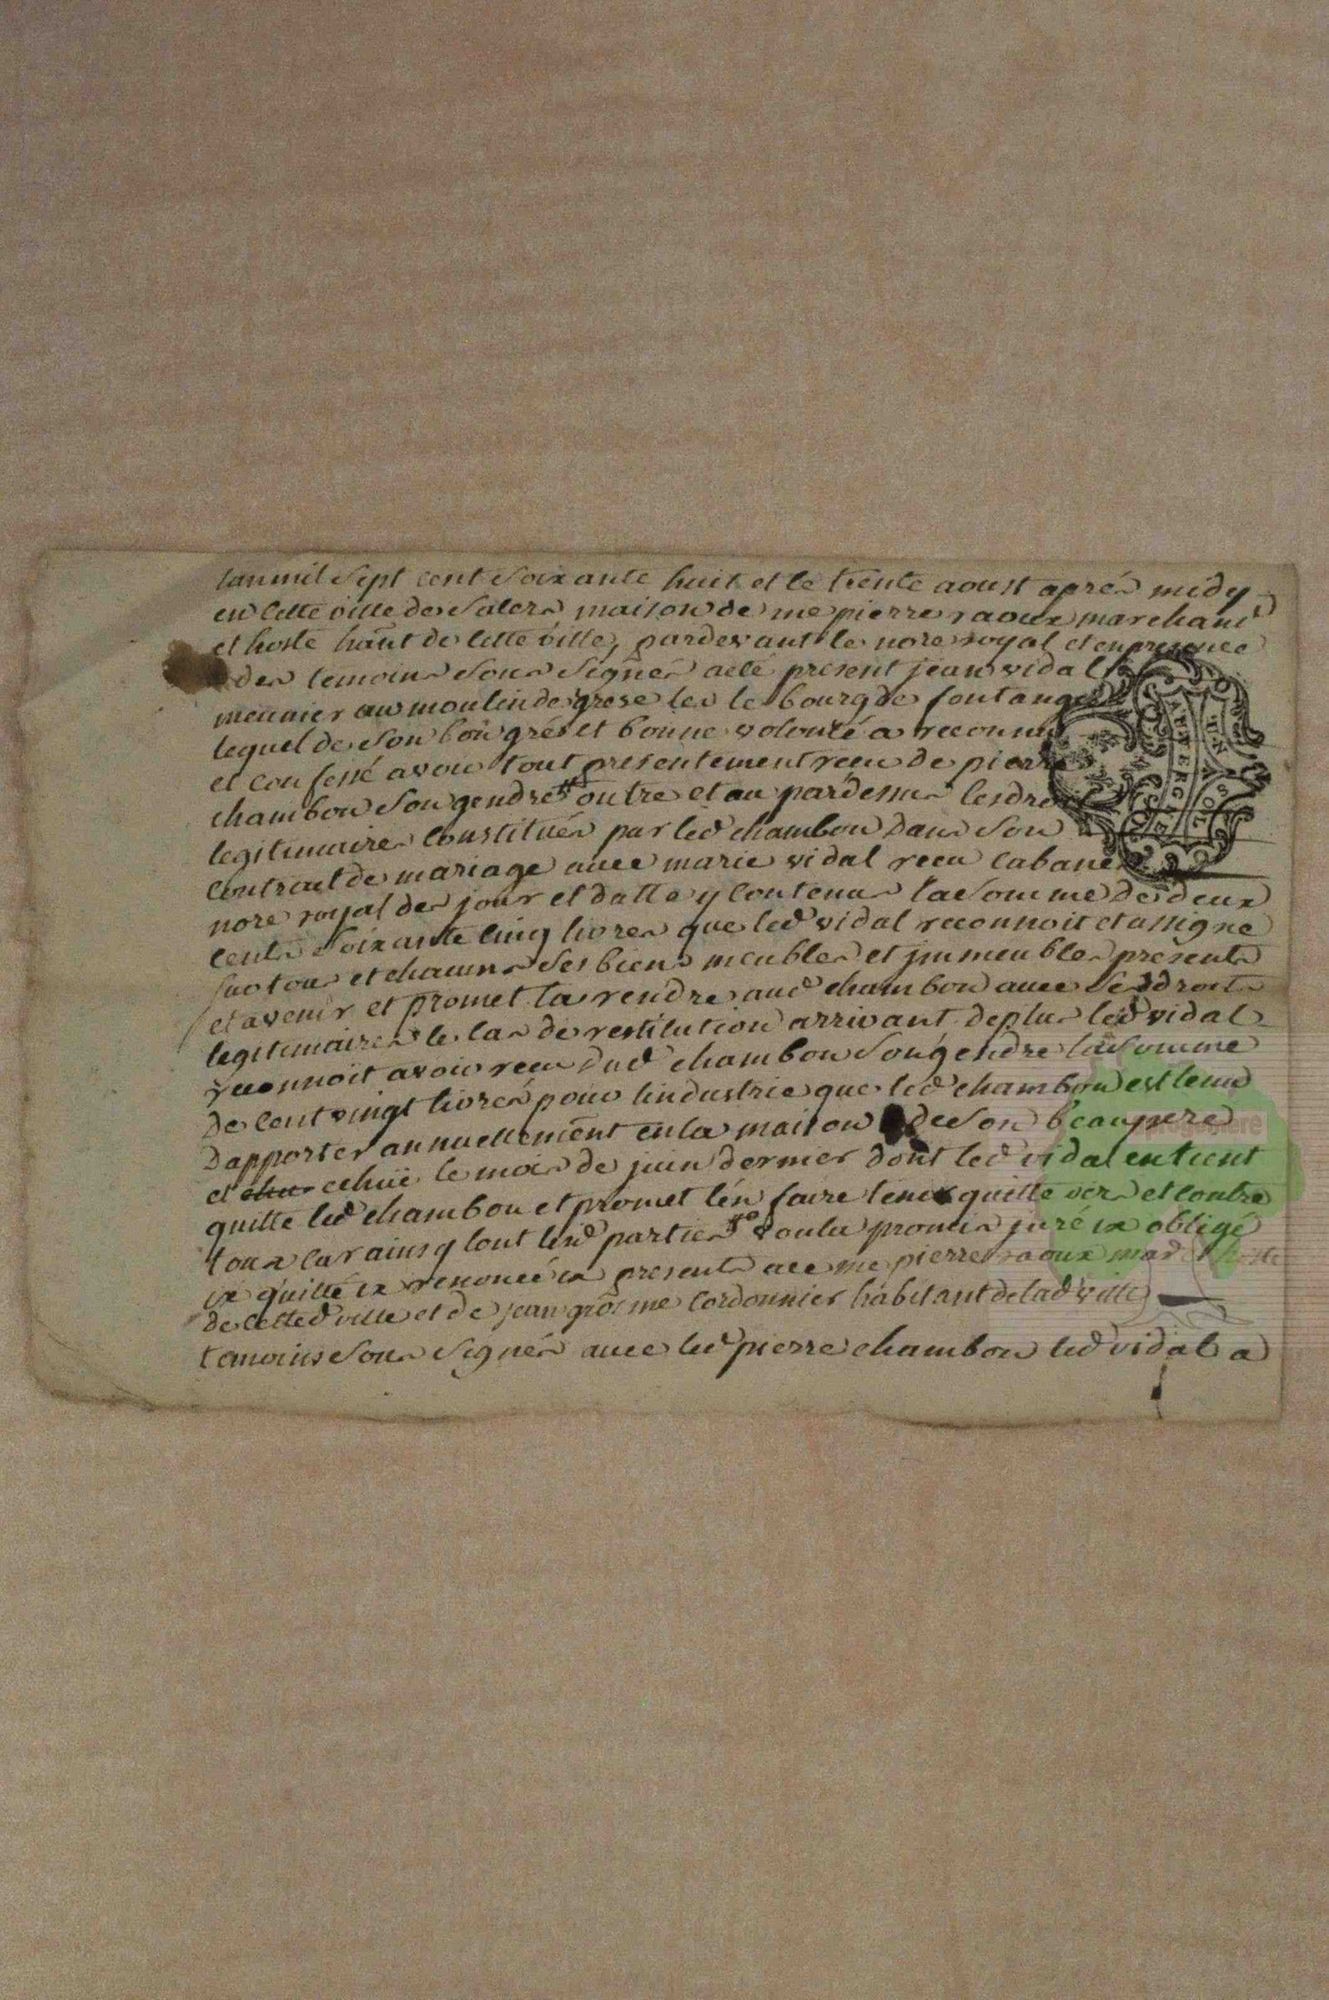 lan mil sept cent soixante huit et le trente aoust aprés midy
en cette ville de salers maison de me pierre raoux marchant
et hoste hâut de cette ville, pardevant le nore royal et en presence
des temoins sous signés a eté present jean vidal
meunier au moulin de grose les le bourg de fontanges
lequel de son bon gré et bonne volonté a reconnu
et confessé avoir tout presentement receu de pierre
chambon son gendre outre et au pardessus lesdroits
legitimaires constitués par led chambon dans son
contract de mariage avec marie vidal receu cabanes
nore royal des jour et datte y contenus la somme de deux
cents soixante cinq livres que led vidal reconnoit et assigne
sur tous et chacuns ses biens meubles et jmmeubles presents
et avenir et promet la rendre aud chambon avec sesd droits
legitimaires le cas de restitution arrivant deplus led vidal
reconnoit avoir receu dud chambon son gendre la somme
de cent vingt livres pour lindustrie que led chambon est tenu
dapporter annuellement en la maison de son beaupere
et echuë le mois de juin dernier dont led vidal en tient
quitte led chambon et promet lén faire tenir quitte vers et contre
tous car ainsy lont lesd parties voulu promis juré ix obligé
ix quitté ix renoncé ix presents a ce me pierre raoux mard et hoste
de cetted ville et de jean gros me cordonnier habitant de lad ville
temoins sous signés avec led pierre chambon led vidal a
UN SOL